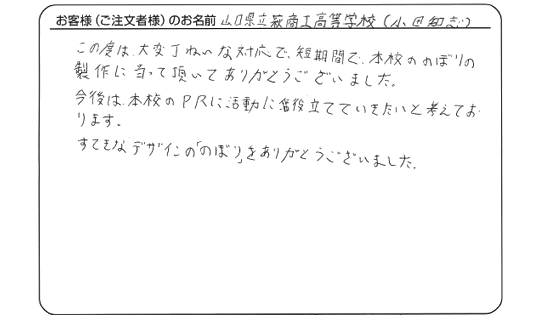 お客様(ご注文者様)のお名前 山口県立萩商工高等学校(小田知志)
この度は、大変丁ねいな対応で、短期間で、本校ののぼりの
製作に当って頂いてありがとうございました。
今後は、本校のPRに活動に役立てていきたいと考えてお
ります。
すてきなデザインの「のぼり」をありがとうございました。